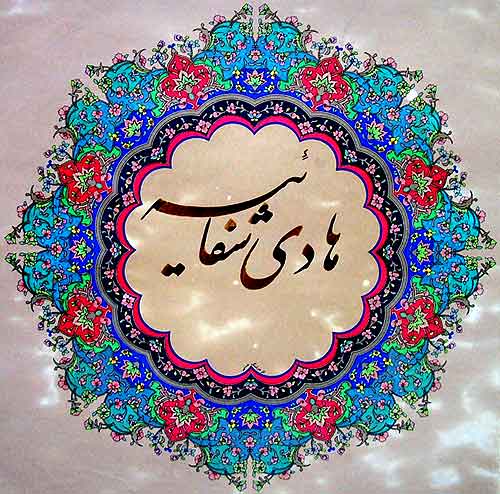 هادی شفائیه